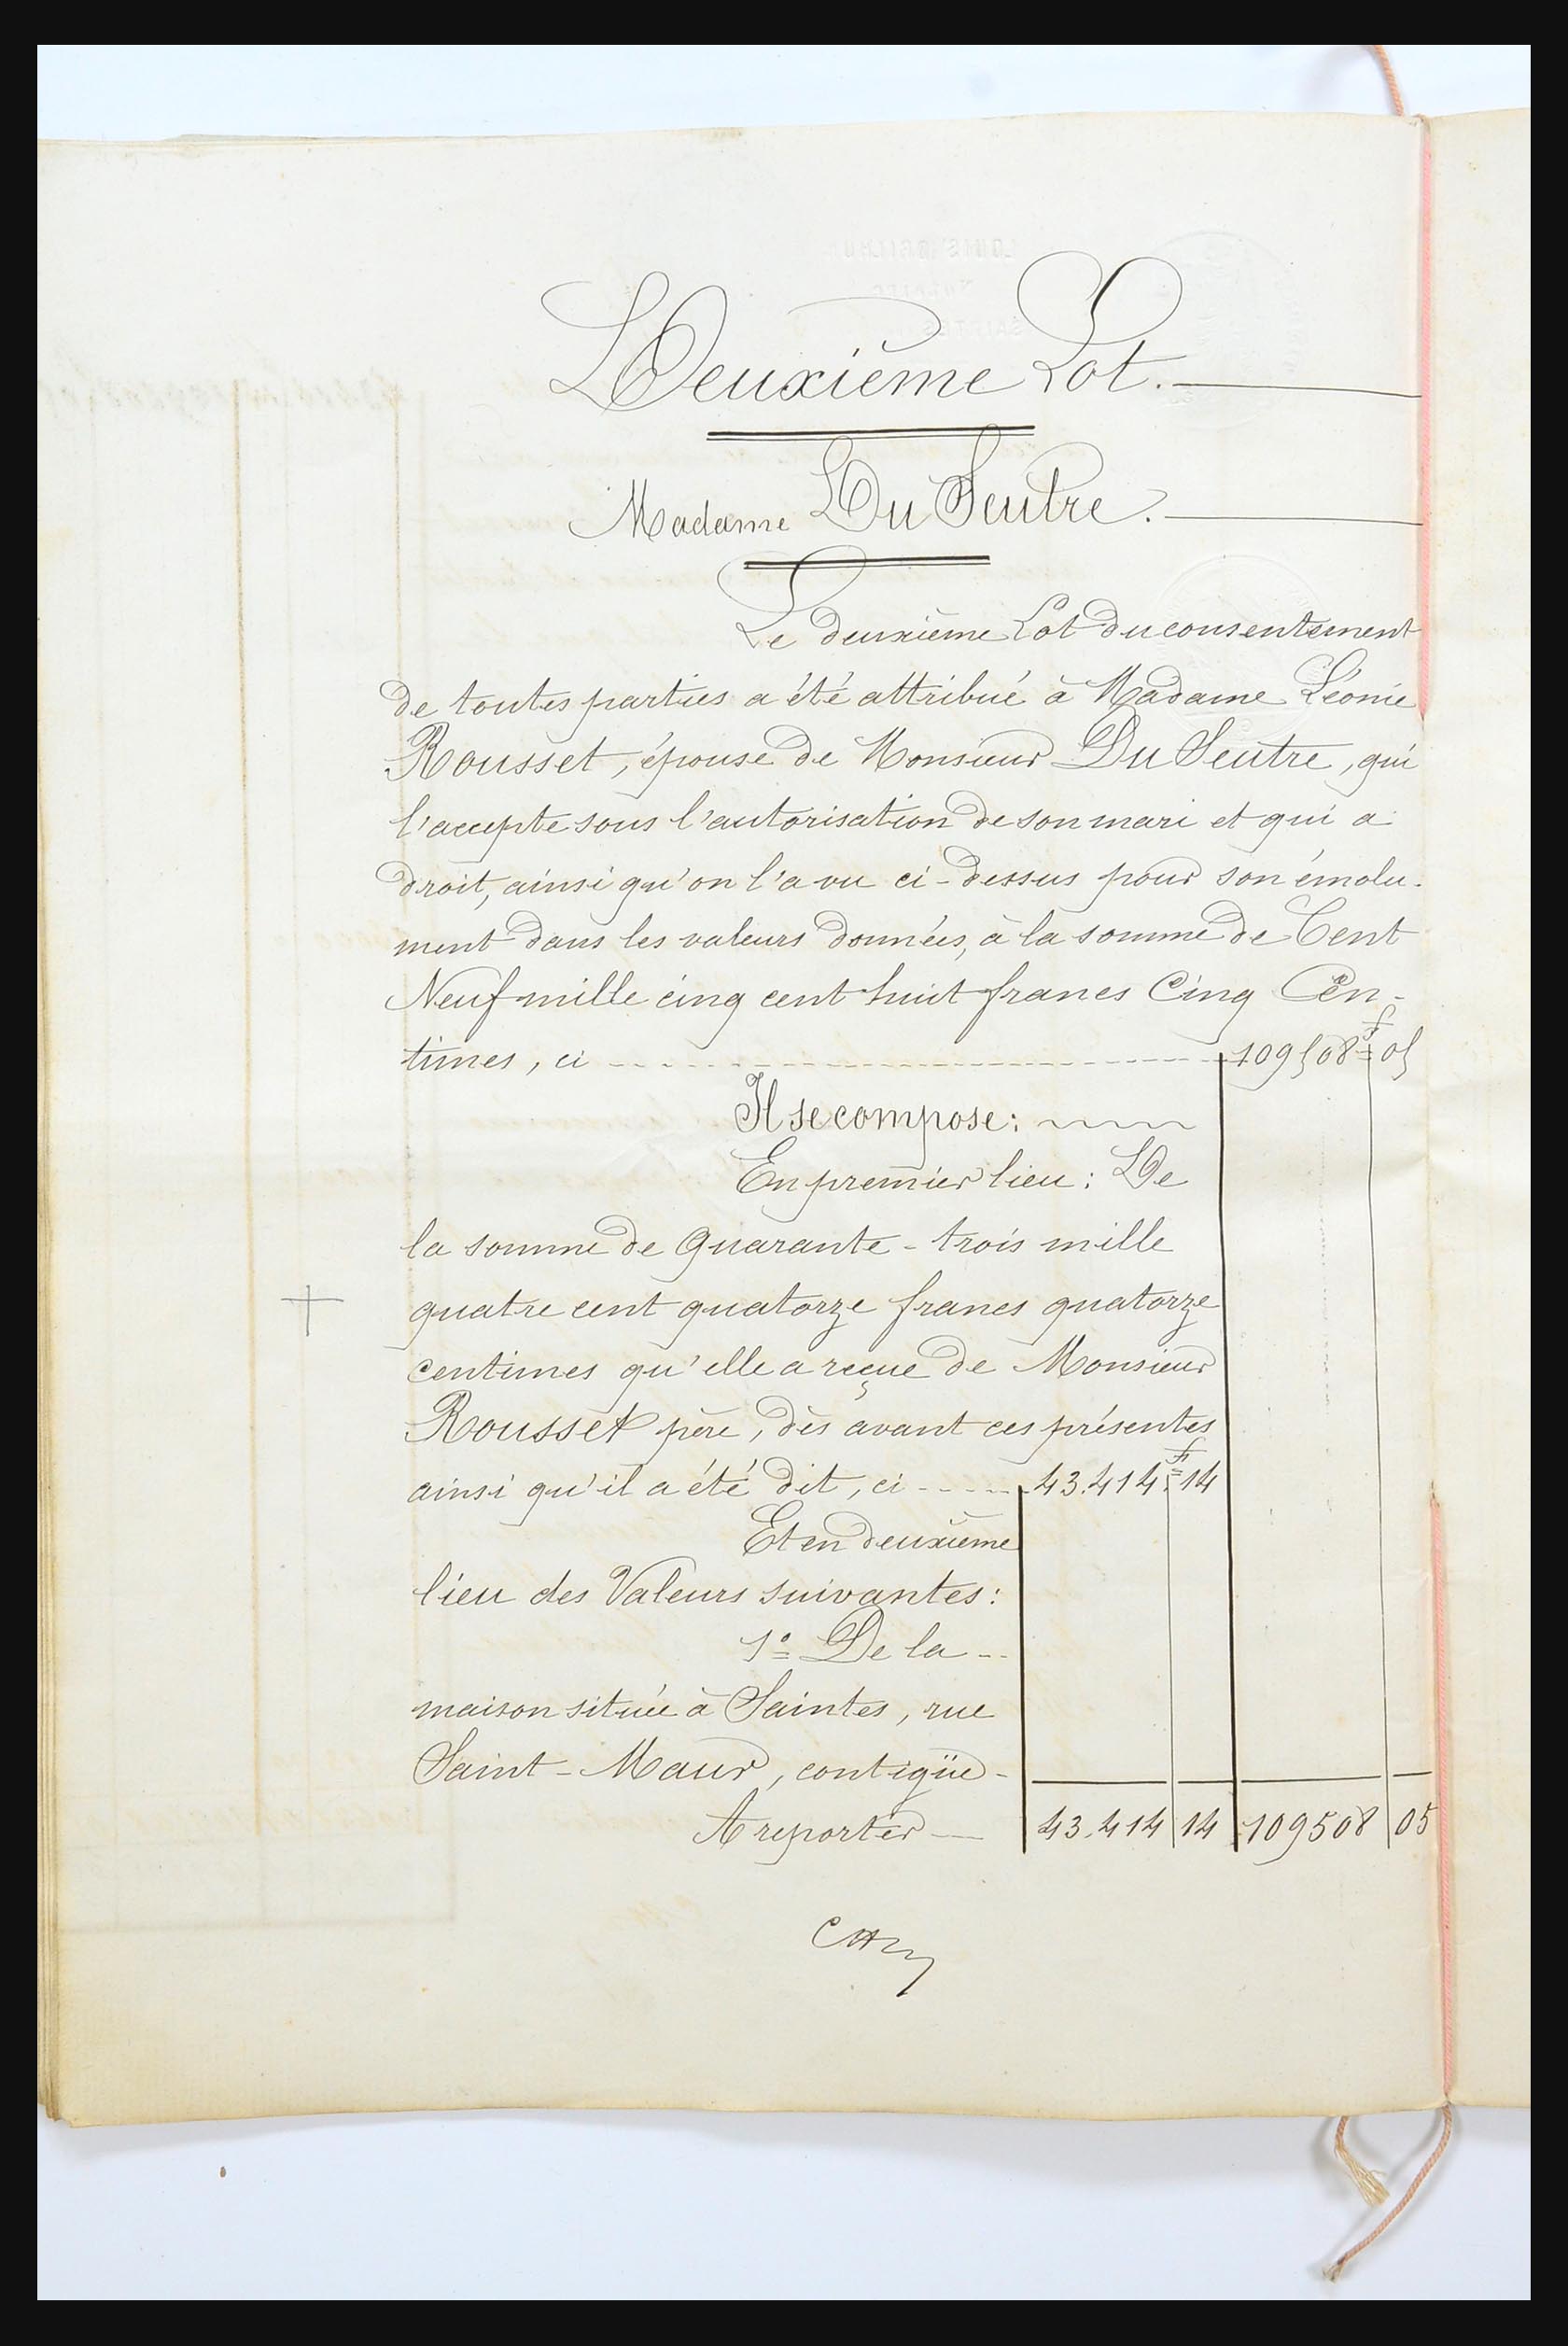 Deuxième Lot.
Madame Du Seutre.
Le deuxième Lot du consentement
de toutes parties a été attribué à Madame Léonie
Rousset, épouse de Monsieur Du Seutre, qui
l'accepte sous l'autorisation de son mari et qui a
droit, ainsi qu'on l'a vu ci-dessus pour son émolu-
ment dans les valeurs données, à la somme de Cent
Neuf mille cinq cent huit francs Cinq Cen-
times, ci 109508 f 05
Il se compose:
En premier lieu: De
la somme de Quarante-trois mille
quatre cent quatorze francs quatorze
centimes qu'elle a reçue de Monsieur
Rousset père, dès avant ces présentes
ainsi qu'il a été dit, ci 43.414 f 14
Et en deuxième
lieu des Valeurs suivantes:
1º De la
maison située à Saintes, rue
Saint-Maur, contigüe
A reporter 43.414 14 109508 05